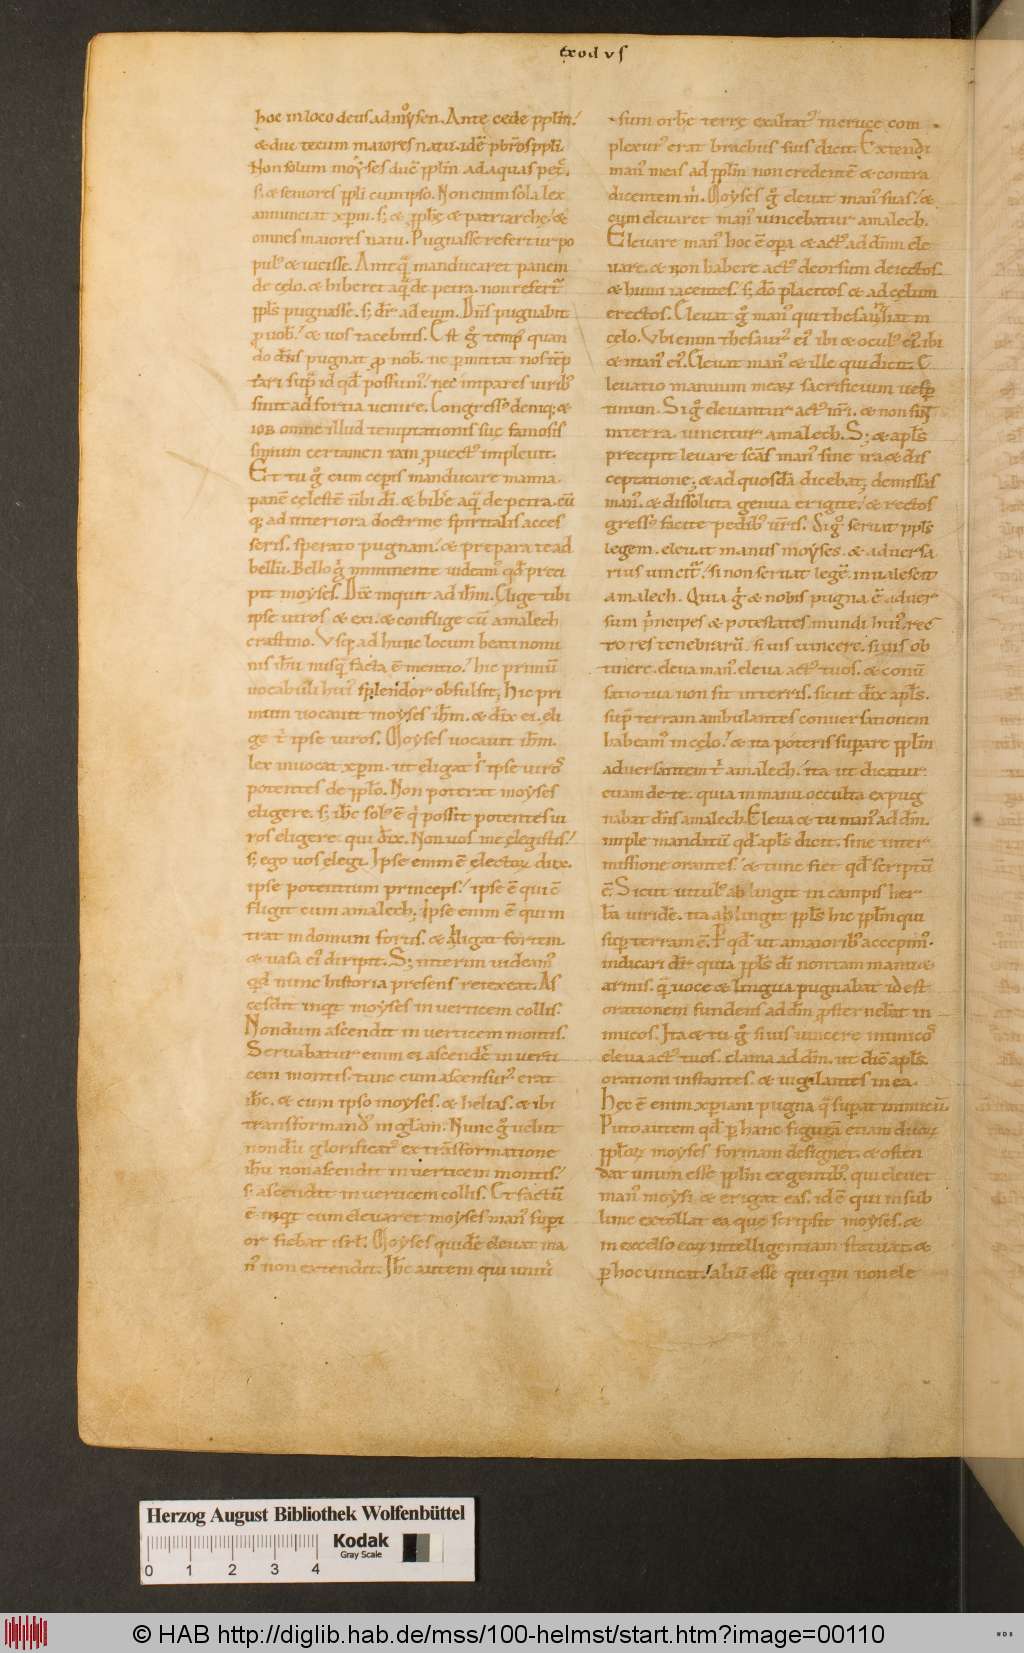 exodvs
hoc in loco deus ad moysen. Antecede pplm.
& duc tecum maiores natu. idē pbrōs ppli.
Non solum moyses duc̄ pplm ad aquas pet̄.
s; & seniores ppli cum ipso. Non enim sola lex
annunciat xpm. s; & pphe & patriarche. &
omnes maiores natu. Pugnasse refertur po
pul' & uicisse. Anteq̄ manducaret panem
de celo. & biberet aq̄ de petra. non refert̄
ppls pugnasse. s; dr ad eum. Dn̄s pugnabit
p uob'. & uos tacebitis. Est g temp' quan
do dn̄s pugnat p nob'. nc pmittat nos tēp
tari sup id qd possum'. nec impares virib'
sinit ad fortia venire. Congress' deniq; &
iob omne illud temptationis sue famosis
simum certamen iam puect' impleuit.
Et tu g cum ceperis manducare manna.
panē celestē ubi di. & bibe aq̄ de petra. cū
q; ad interiora doctrine spiritalis acces
seris. sperato pugnam. & prepara te ad
bellū. Bello g imminente uideam' qd preci
pit moyses. Dixit inquit ad ihm. Elige tibi
ipse uiros & exi. & conflige cū amalech
crastino. Usq; ad hunc locum beati nomi
nis ihu nusq̄ facta ē mentio. hic primū
uocabuli hui' splendor obfulsit, hic pri
mum uocauit moyses ihm. & dix ei. eli
ge t ipse uiros. Moyses uocauit ihm.
lex inuocat xpm. ut eligat s ipse uiros
potentes de pplo. Non poterat moyses
eligere. s; ihc sol' ē q possit potentes ui
ros eligere. qui dix. Non uos me elegistis.
s; ego uos elegi. Ipse enim ē electorꝝ dux.
ipse potentium princeps. ipse ē qui cō
fligit cum amalech. Ipse enim ē qui in
trat in domum fortis. & alligat fortem
& uasa ei' diripit. S; interim uideam'
qd nunc historia presens retexeat. As
cendit inqt moyses in verticem collis.
Nondum ascendit in verticem montis.
Seruabatur enim ei ascender in verti
cem montis. tunc cum ascensur' erat
ihc. & cum ipso moyses. & helias. & ibi
transformand' in glam. Nunc g velut
nondū glorificat' ex trāsformatione
ihu non ascendit in verticem montis.
s; ascendit in verticem collis. Et factū
ē inqt cum eleuaret moyses man' supi
or fiebat isrl. Moyses quidē eleuat ma
n' non extendit. Ihc autem qui uniū
sum orbē terre exaltat' in cruce com
plexur' erat brachiis suis dicit. Extendi
man' meas ad pplm non credentē & contra
dicentem m. Moyses g eleuat man' suas. &
cum eleuaret man' vincebatur amalech.
Eleuare man' hoc ē opa & act' ad dnm ele
uare. & non habere act' deorsum deiectos.
& humi iacentes. s; do placitos & ad celum
erectos. Eleuat g man' qui thesaurizat in
celo. Ubi enim thesaur' ei' ibi & ocul' ei'. ibi
& man' ei'. Eleuat man' & ille qui dicit. E
leuatio manuum mearꝝ sacrificium vesp
tinum. Si g eleuantur act' nri. & non sint
in terra. vincitur amalech. S; & apls
precipit leuare scās man' sine ira & dis
ceptatione; & ad quosdā dicebat; demissas
man'. & dissoluta genua erigite. & rectos
gress' facite pedib' uris. Si g seruat ppls
legem. eleuat manus moyses. & aduersa
rius vincit. si non seruat legē. inualescit
amalech. Quia g & nobis pugna ē aduer
sum principes & potestates mundi hui'. rec
tores tenebrarū. si uis vincere. si uis ob
tinere. eleua man'. eleua act' tuos. & conū
satio tua non sit in terris. sicut dix apls.
sup terram ambulantes conuersationem
habeam' in celo. & ita poteris supare pplm
aduersantem t amalech. ita ut dicatur
etiam de te. quia in manu occulta expug
nabat dns amalech. Eleua & tu man' ad dm.
imple mandatū qd apls dicit. sine inter
missione orantes. & tunc fiet qd scriptū
ē. Sicut uitul' ablingit in campis her
bā viridē. ita ablingit ppls hic pplm qui
sup terram ē. P qd ut a maiorib' accepim'.
indicari dr quia ppls di non tam manu &
armis. q̄ uoce & lingua pugnabat id est
orationem fundens ad dm psternebat in
imicos. Ita & tu g si uis vincere inimicos
eleua act' tuos. clama ad dm. ut dic apls.
orationi instantes. & uigilantes in ea.
hec ē enim xpiani pugna q supat inimicū.
Puto autem qd p hanc figurā etiam duorꝝ
pplorꝝ moyses formam designet. & osten
dat unum esse pplm ex gentib'. qui eleuet
man' moysi. & erigat eas. id ē qui in sub
lime extollat ea que scripsit moyses. &
in excelso eorꝝ intelligentiam statuat. &
p hoc vincat. aliū esse qui qm non ele
Herzog August Bibliothek Wolfenbüttel
0 1 2 3 4
Kodak
Gray Scale
© HAB http://diglib.hab.de/mss/100-helmst/start.htm?image=00110